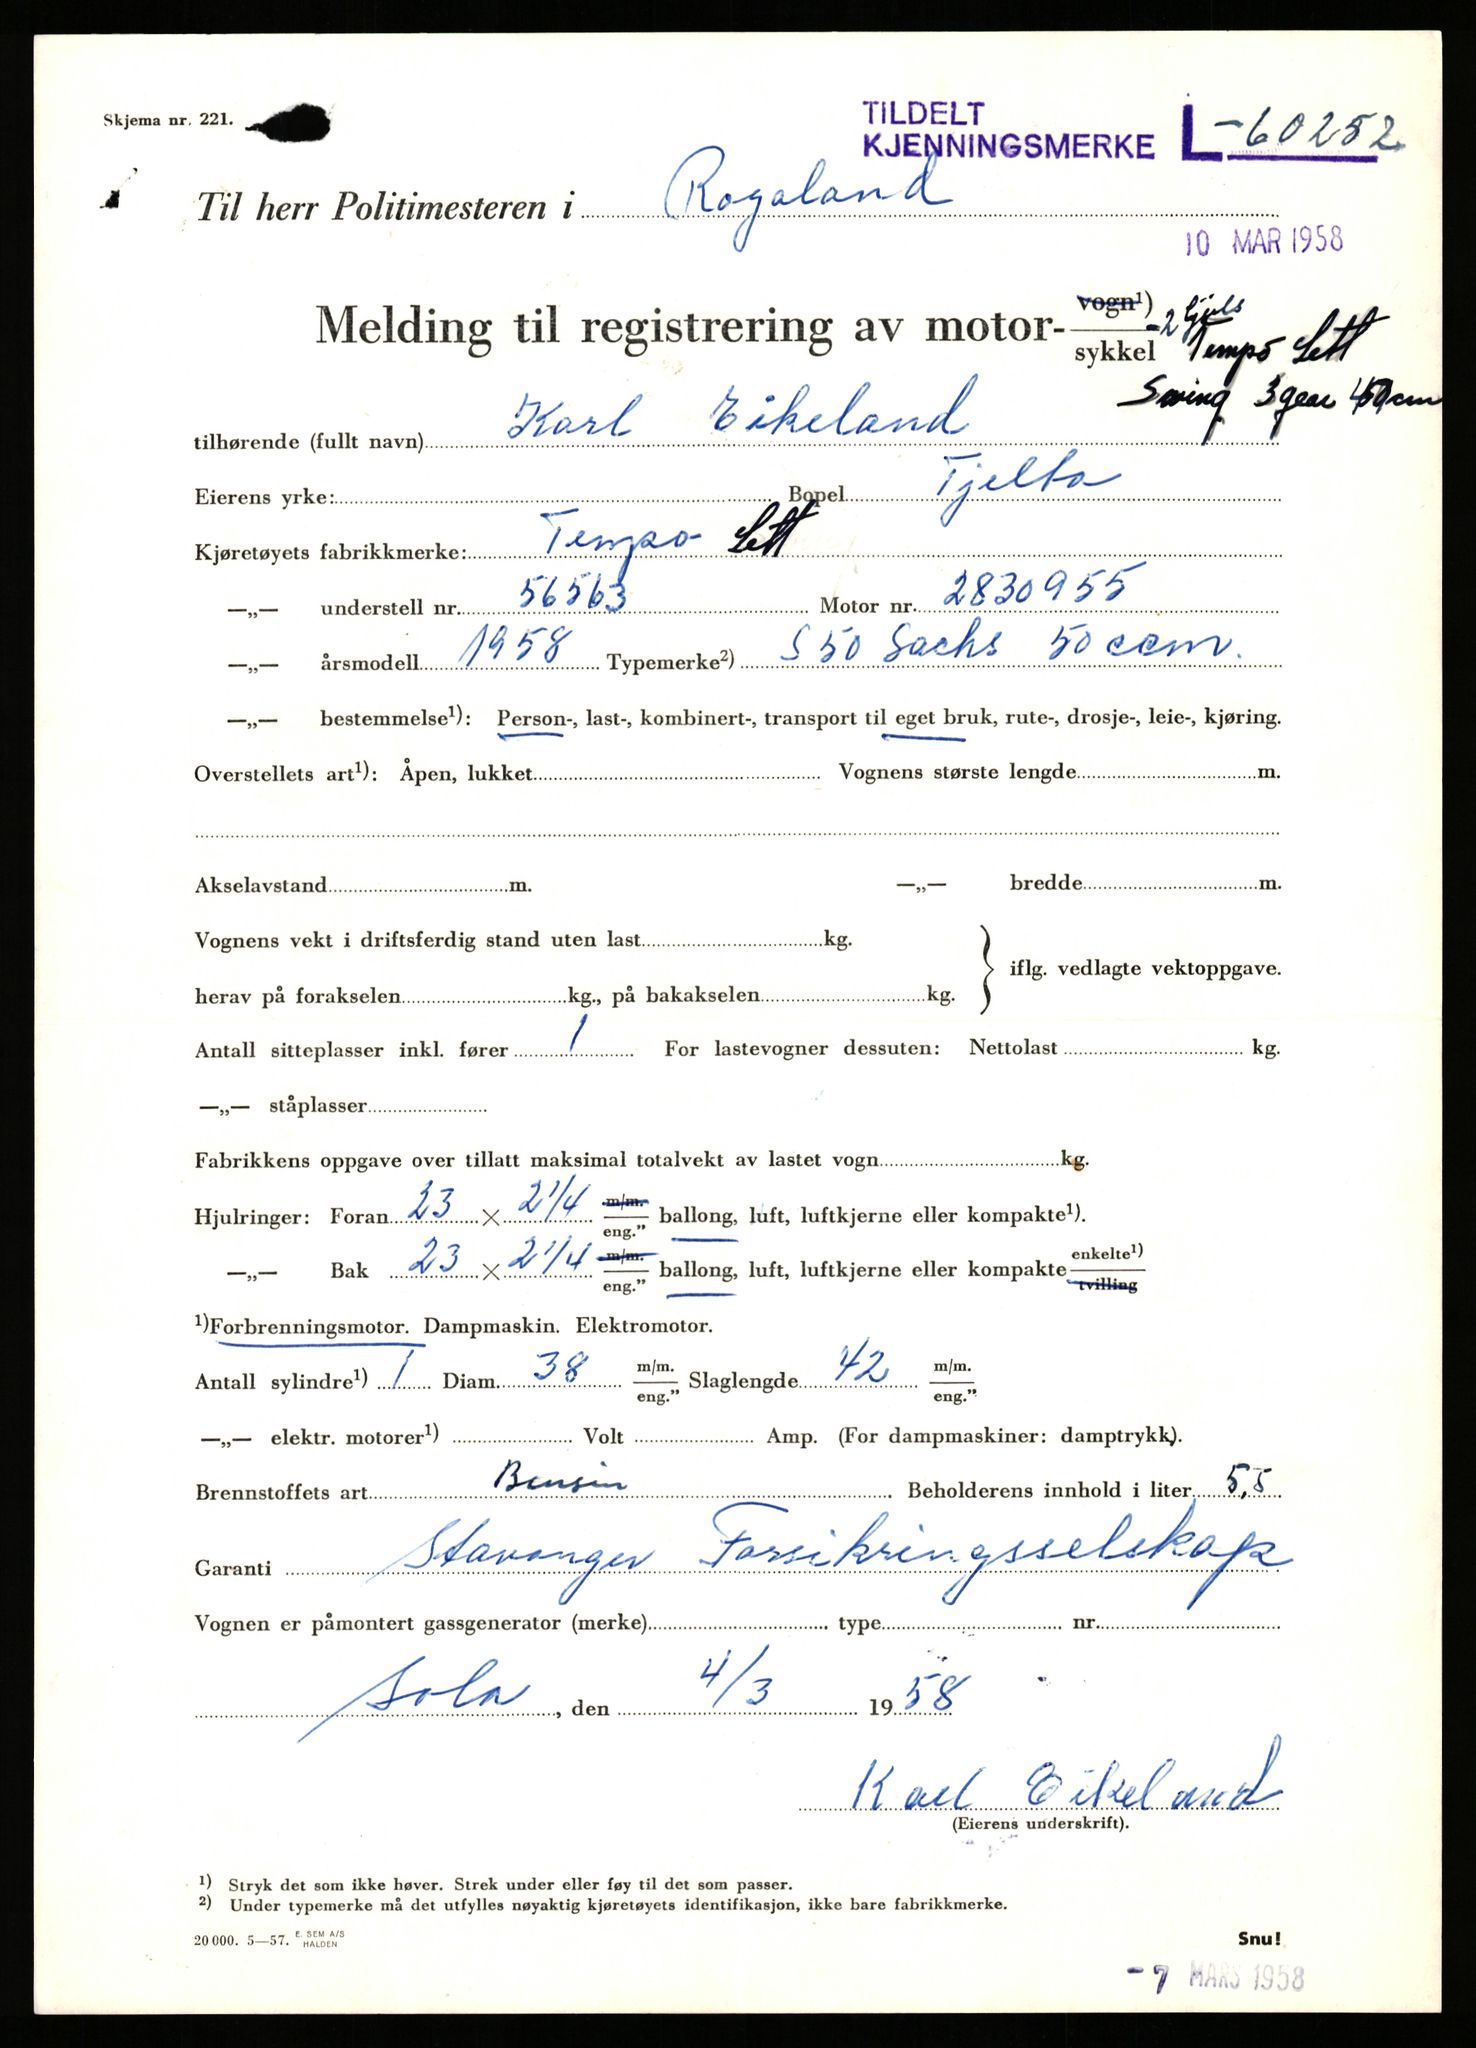 Skjema nr. 221.
TILDELT
KJENNINGSMERKE L -60252
Til herr Politimesteren i Rogaland
10 MAR 1958
Melding til registrering av motor- vogn¹) sykkel -2 hjuls
Tempo Lett
Swing 3 gear
tilhørende (fullt navn) Karl Eikeland
Eierens yrke: Bopel Tjelta
Kjøretøyets fabrikkmerke: Tempo Lett
—„— understell nr. 56563 Motor nr. 2830955
—„— årsmodell 1958 Typemerke²) S 50 Sachs 50 ccm.
—„— bestemmelse¹): Person-, last-, kombinert-, transport til eget bruk, rute-, drosje-, leie-, kjøring.
Overstellets art¹): Åpen, lukket Vognens største lengde m.
Akselavstand m. —„— bredde m.
Vognens vekt i driftsferdig stand uten last kg.
iflg. vedlagte vektoppgave.
herav på forakselen kg., på bakakselen kg.
Antall sitteplasser inkl. fører 1 For lastevogner dessuten: Nettolast kg.
—„— ståplasser
Fabrikkens oppgave over tillatt maksimal totalvekt av lastet vogn kg.
Hjulringer: Foran 23 × 2 1/4 m/m. eng." ballong, luft, luftkjerne eller kompakte¹).
—„— Bak 23 × 2 1/4 m/m. eng." ballong, luft, luftkjerne eller kompakte enkelte¹) tvilling
¹)Forbrenningsmotor. Dampmaskin. Elektromotor.
Antall sylindre¹) 1 Diam. 38 m/m. eng." Slaglengde 42 m/m. eng."
—„— elektr. motorer¹) Volt Amp. (For dampmaskiner: damptrykk).
Brennstoffets art Bensin Beholderens innhold i liter 5,5
Garanti Stavanger Forsikringsselskap
Vognen er påmontert gassgenerator (merke) type nr.
Sola, den 4/3 1958
Karl Eikeland
(Eierens underskrift).
¹) Stryk det som ikke høver. Strek under eller føy til det som passer.
²) Under typemerke må det utfylles nøyaktig kjøretøyets identifikasjon, ikke bare fabrikkmerke.
20 000. 5—57. E. SEM A/S HALDEN
Snu!
-7 MARS 1958